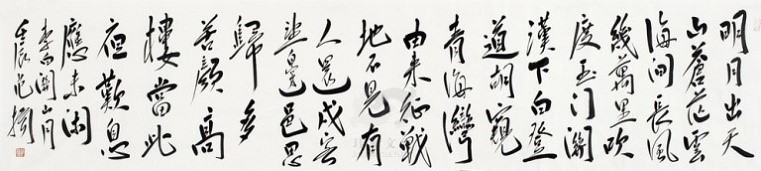 明月出天
山蒼茫雲
海間長風
幾萬里吹
度玉門關
漢下白登
道胡窺
青海灣
由來征戰
地不見有
人還戍客
望邊邑思
歸多
苦顏高
樓當此
夜歎息
應未閑
李白關山月
壬辰范